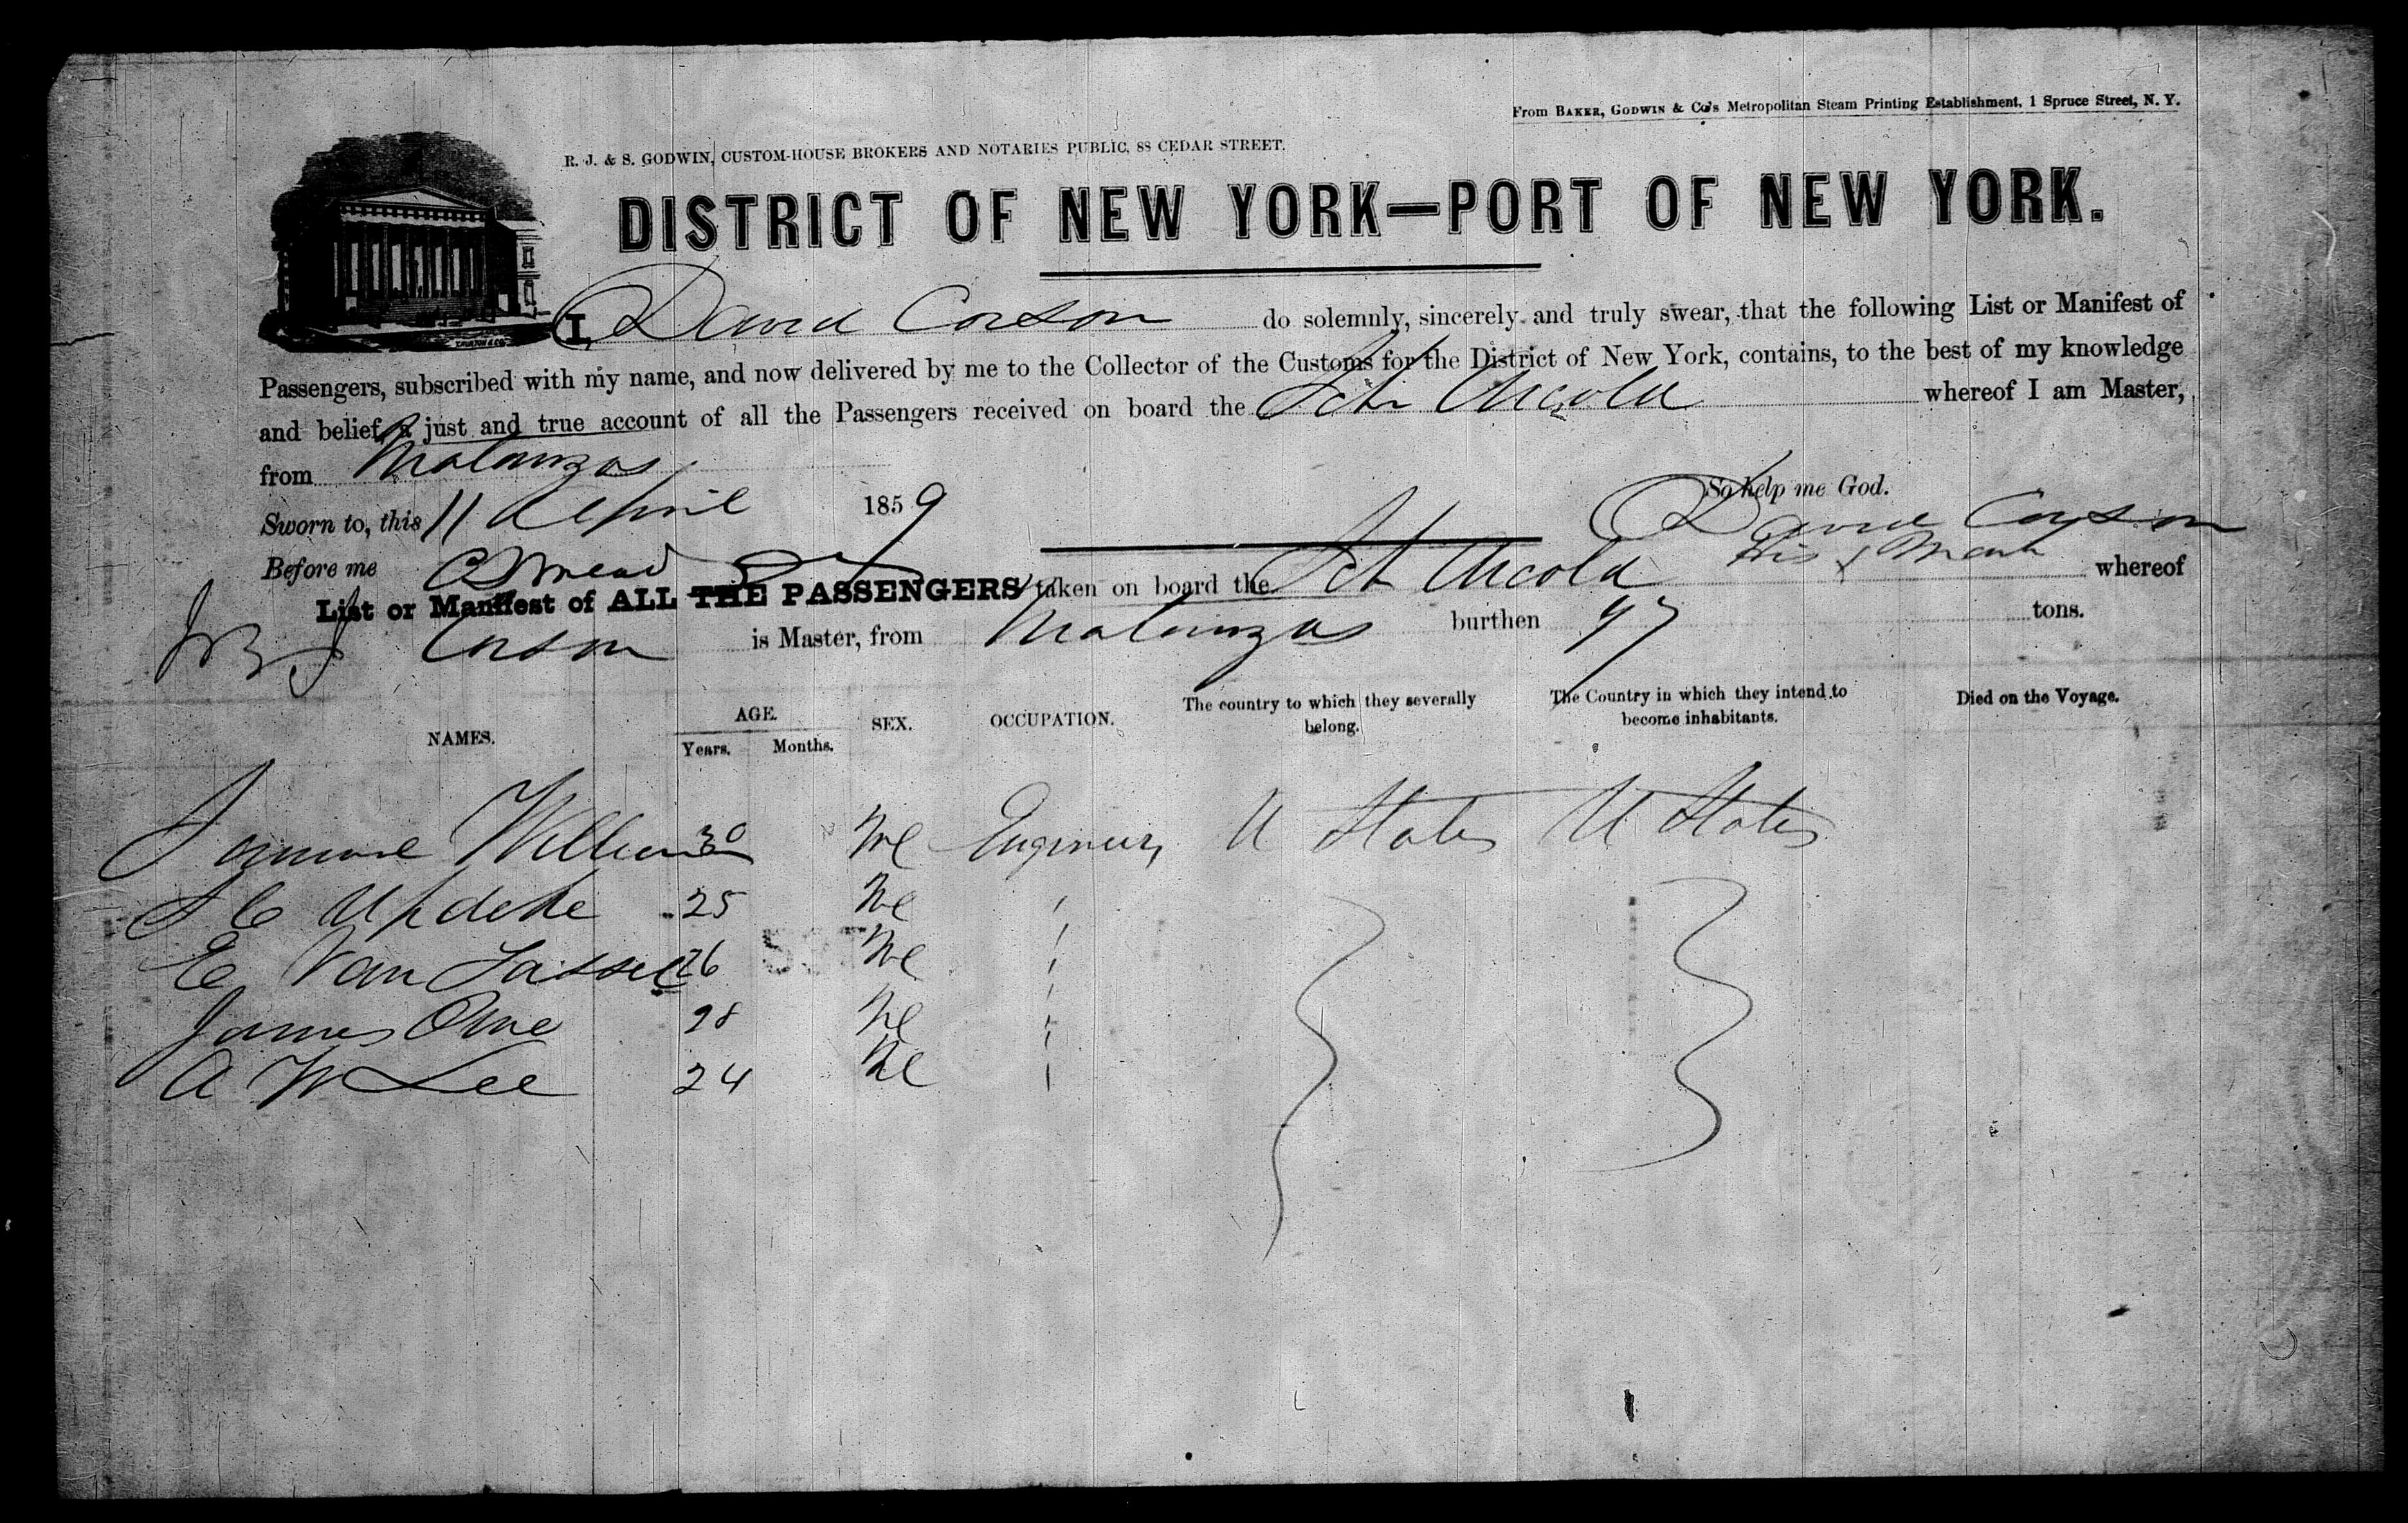 From BAKER, GODWIN & Co's Metropolitan Steam Printing Establishment, 1 Spruce Street, N. Y.
R. J. & S. GODWIN, CUSTOM-HOUSE BROKERS AND NOTARIES PUBLIC, 88 CEDAR STREET.
DISTRICT OF NEW YORK—PORT OF NEW YORK.
I, David Corson do solemnly, sincerely and truly swear, that the following List or Manifest of
Passengers, subscribed with my name, and now delivered by me to the Collector of the Customs for the District of New York, contains, to the best of my knowledge
and belief, a just and true account of all the Passengers received on board the Schr whereof I am Master,
from Matanzas
So help me God.
Sworn to, this 11 April 1859
David Corson
Before me
His x Mark
List or Manifest of ALL THE PASSENGERS taken on board the Sch whereof
Corson is Master, from Matanzas burthen 97 tons.
NAMES. AGE. SEX. OCCUPATION. The country to which they severally belong. The Country in which they intend to become inhabitants. Died on the Voyage.
Years. Months.
30 Ml Engineer, U States U States
S C Updike 25 Ml
E Van Tassel 26 Ml
James 28 Ml
A W Lee 24 Ml